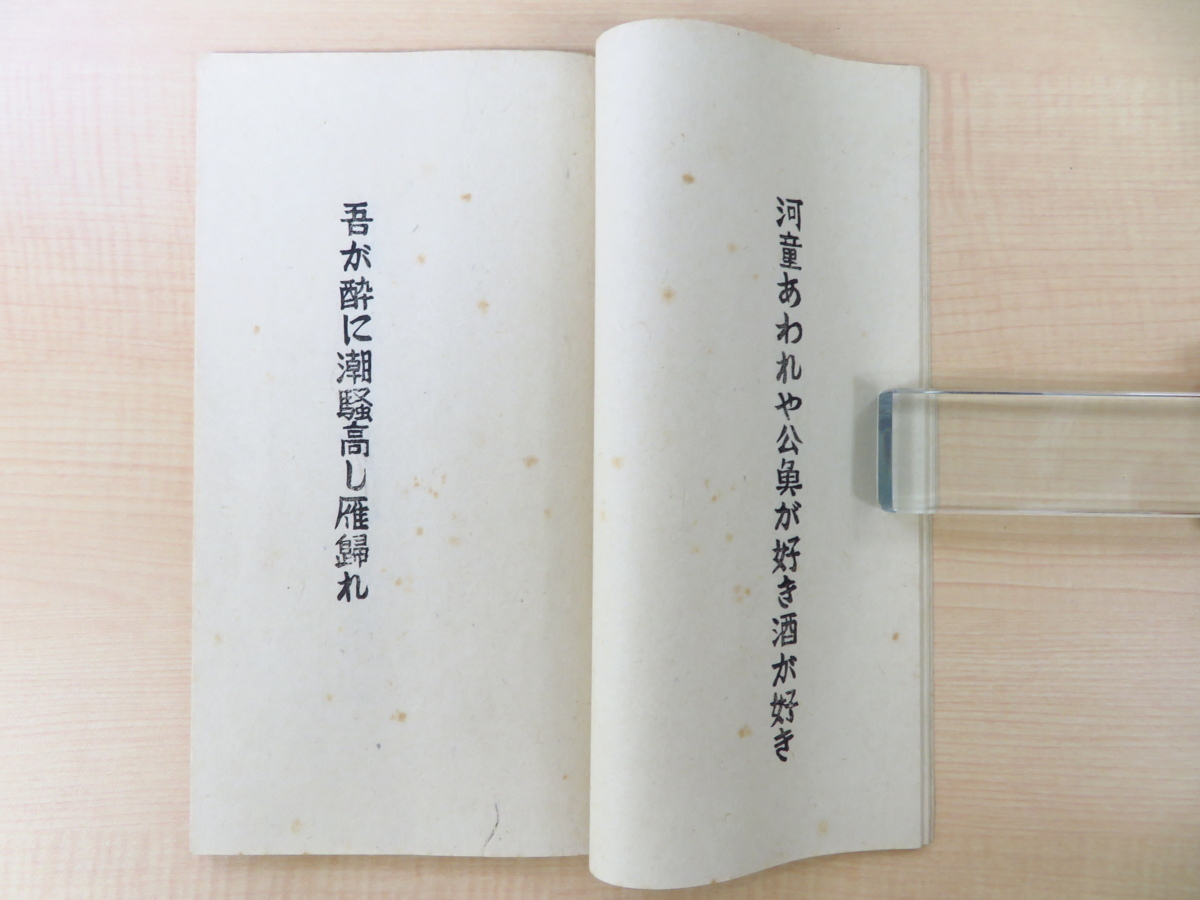 河童あわれや公魚が好き酒が好き
吾が酔に潮騒高し雁歸れ